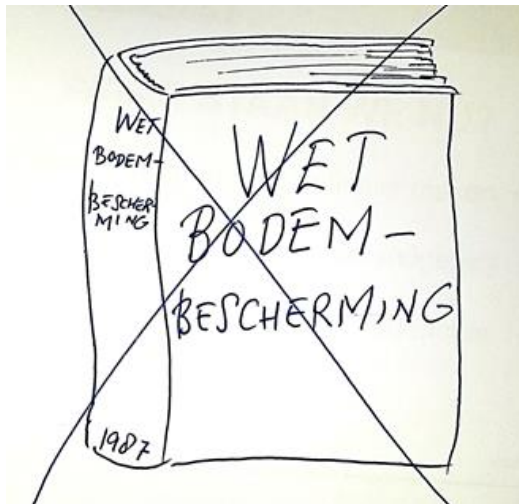 WET
BODEM-
BESCHER-
MING
1987
WET
BODEM-
BESCHERMING